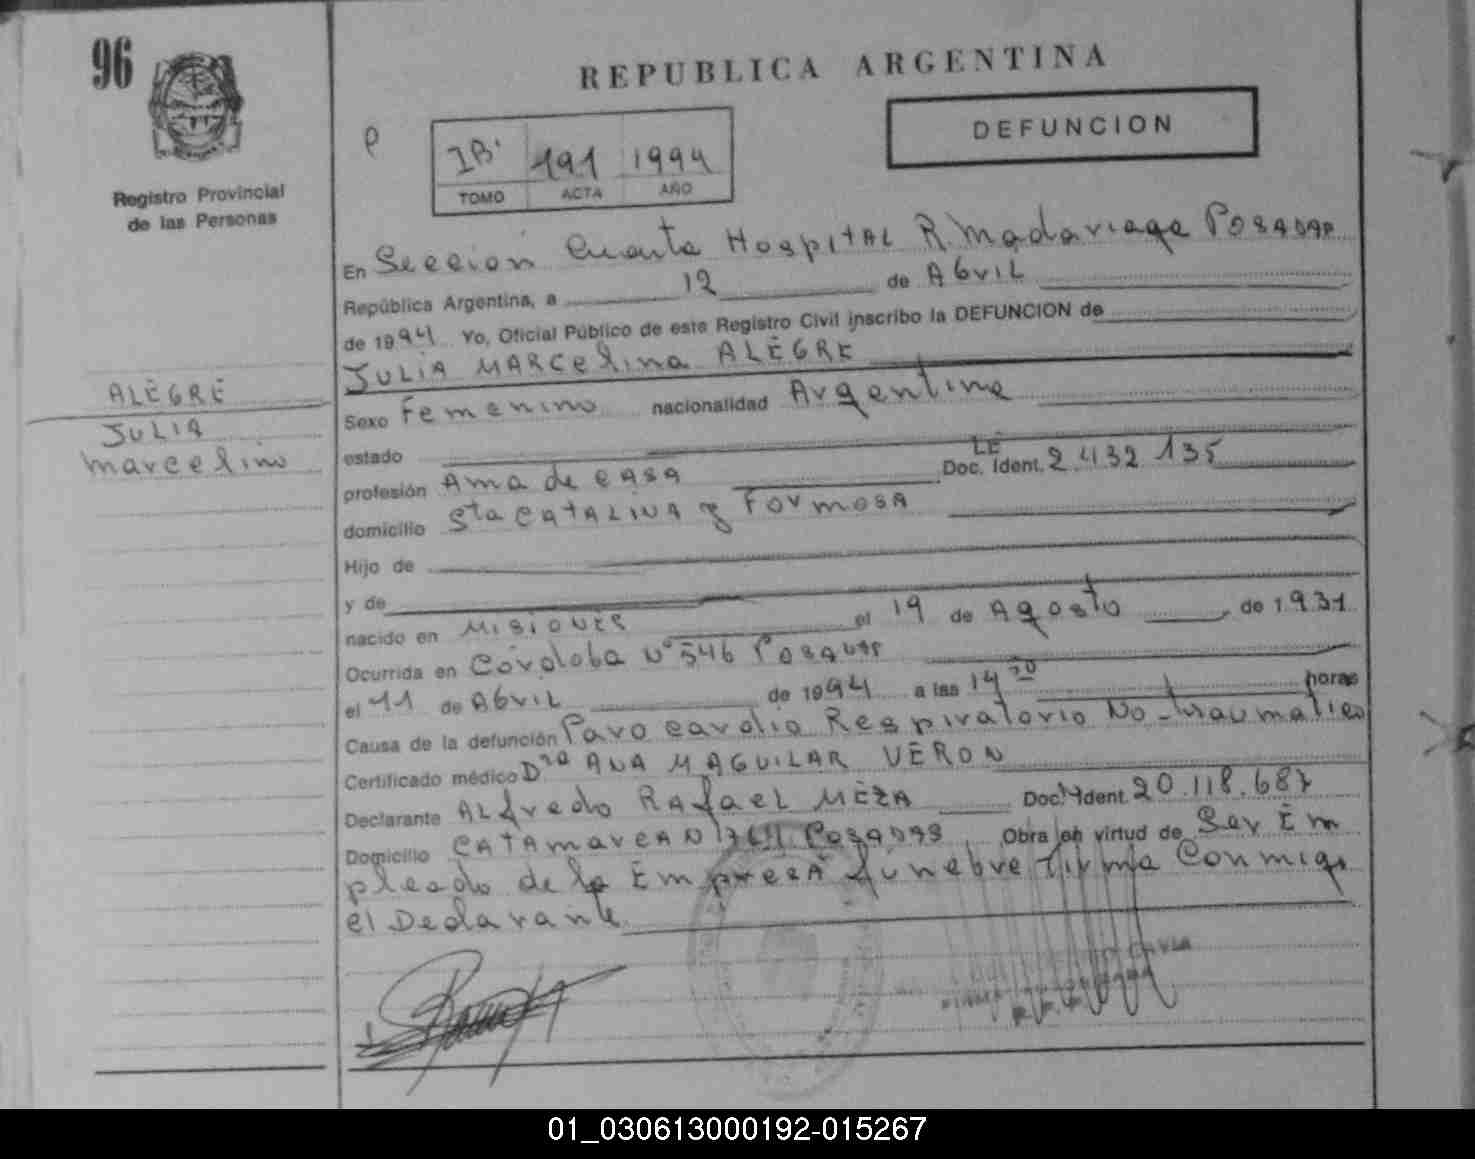 96
REPUBLICA ARGENTINA
DEFUNCION
1B. 191 1994
TOMO ACTA AÑO
Registro Provincial
de las Personas
En Sección Cuarta Hospital R. Madariaga Posadas
República Argentina, a 12 de Abril
de 1994 Yo, Oficial Público de este Registro Civil inscribo la DEFUNCION de
Julia Marcelina ALEGRE
ALEGRE
Julia
Marcelina
Sexo Femenino nacionalidad Argentina
estado
profesión Ama de casa LE Doc. Ident. 2.432.135
domicilio Sta Catalina y Formosa
Hijo de
y de
nacido en Misiones el 19 de Agosto de 1931
Ocurrida en Córdoba Nº 546 Posadas
el 11 de Abril de 1994 a las 14 30 horas
Causa de la defunción Paro cardio Respiratorio No-traumatico
Certificado médico Dra ANA M AGUILAR VERON
Declarante Alfredo Rafael MEZA Doc. Ident. 20.118.687
Domicilio Posadas Obra en virtud de Ser Em
pleado de la Empresa fúnebre Firma Conmigo
el Declarante
01_030613000192-015267